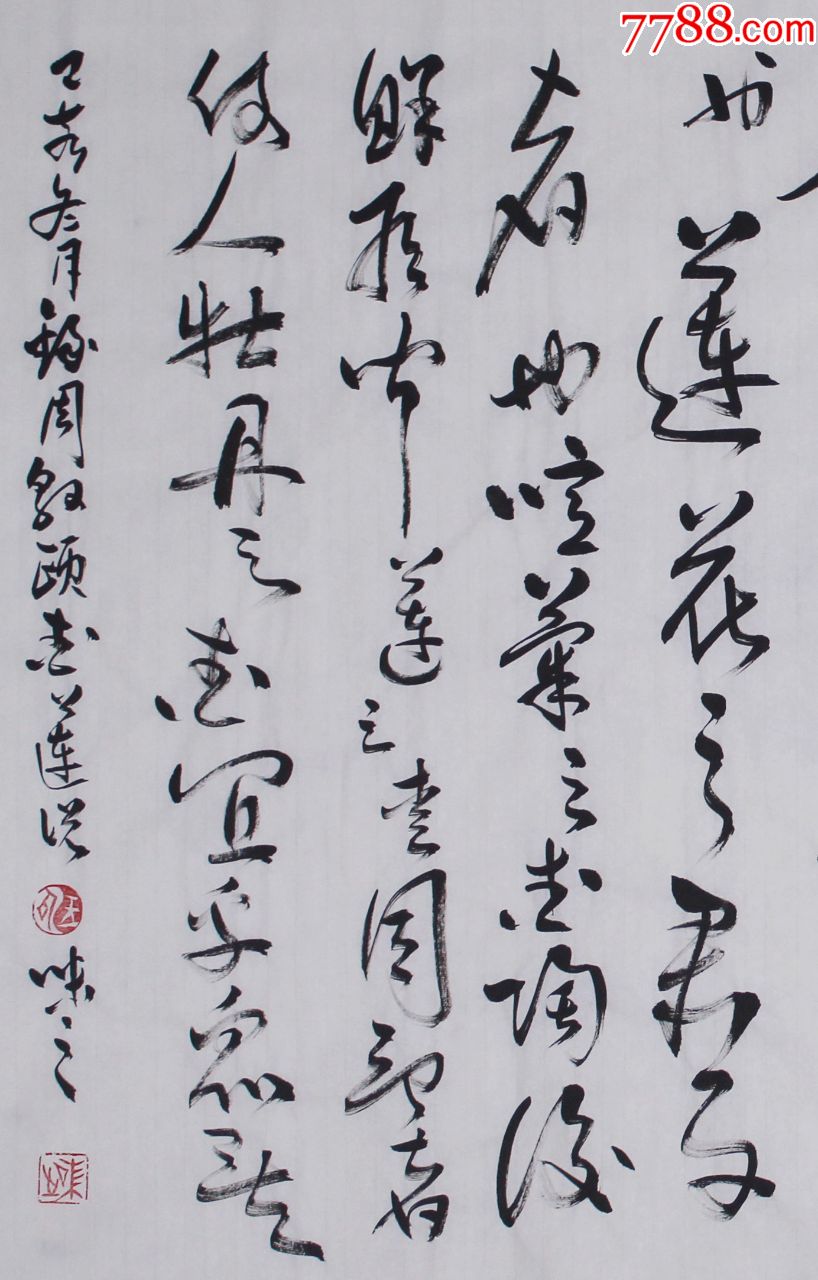 7788.com
也蓮花之君子
者也噫菊之愛陶後
鮮有聞蓮之愛同予者
何人牡丹之愛宜乎眾矣
己亥冬月錄周敦頤愛蓮說